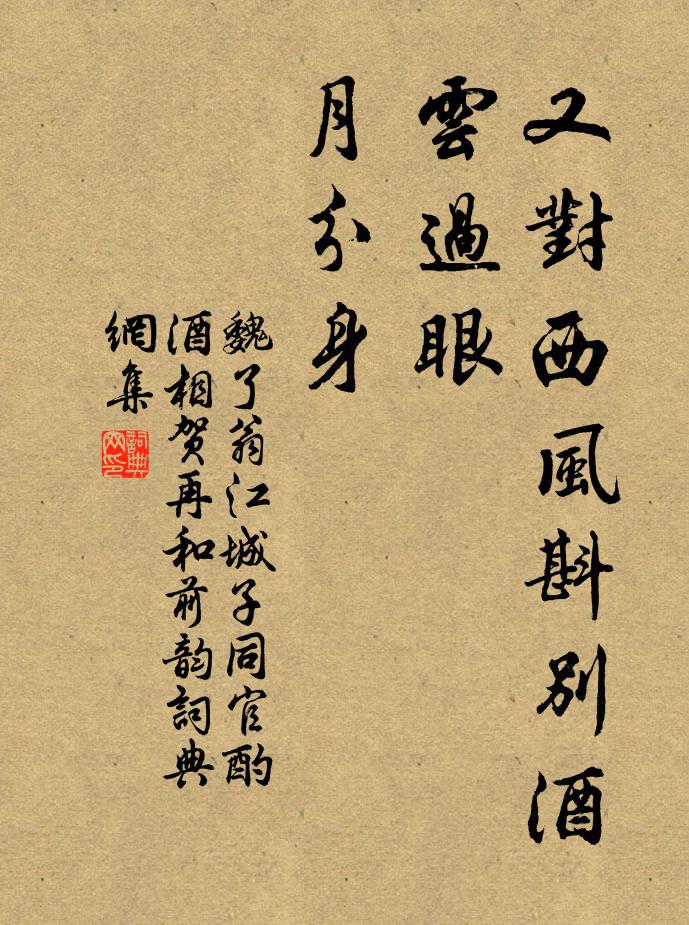 又對西風斟別酒
雲過眼
月分身
魏了翁江城子同官酌
酒相贺再和前韵詞典
網集
詞典
网印